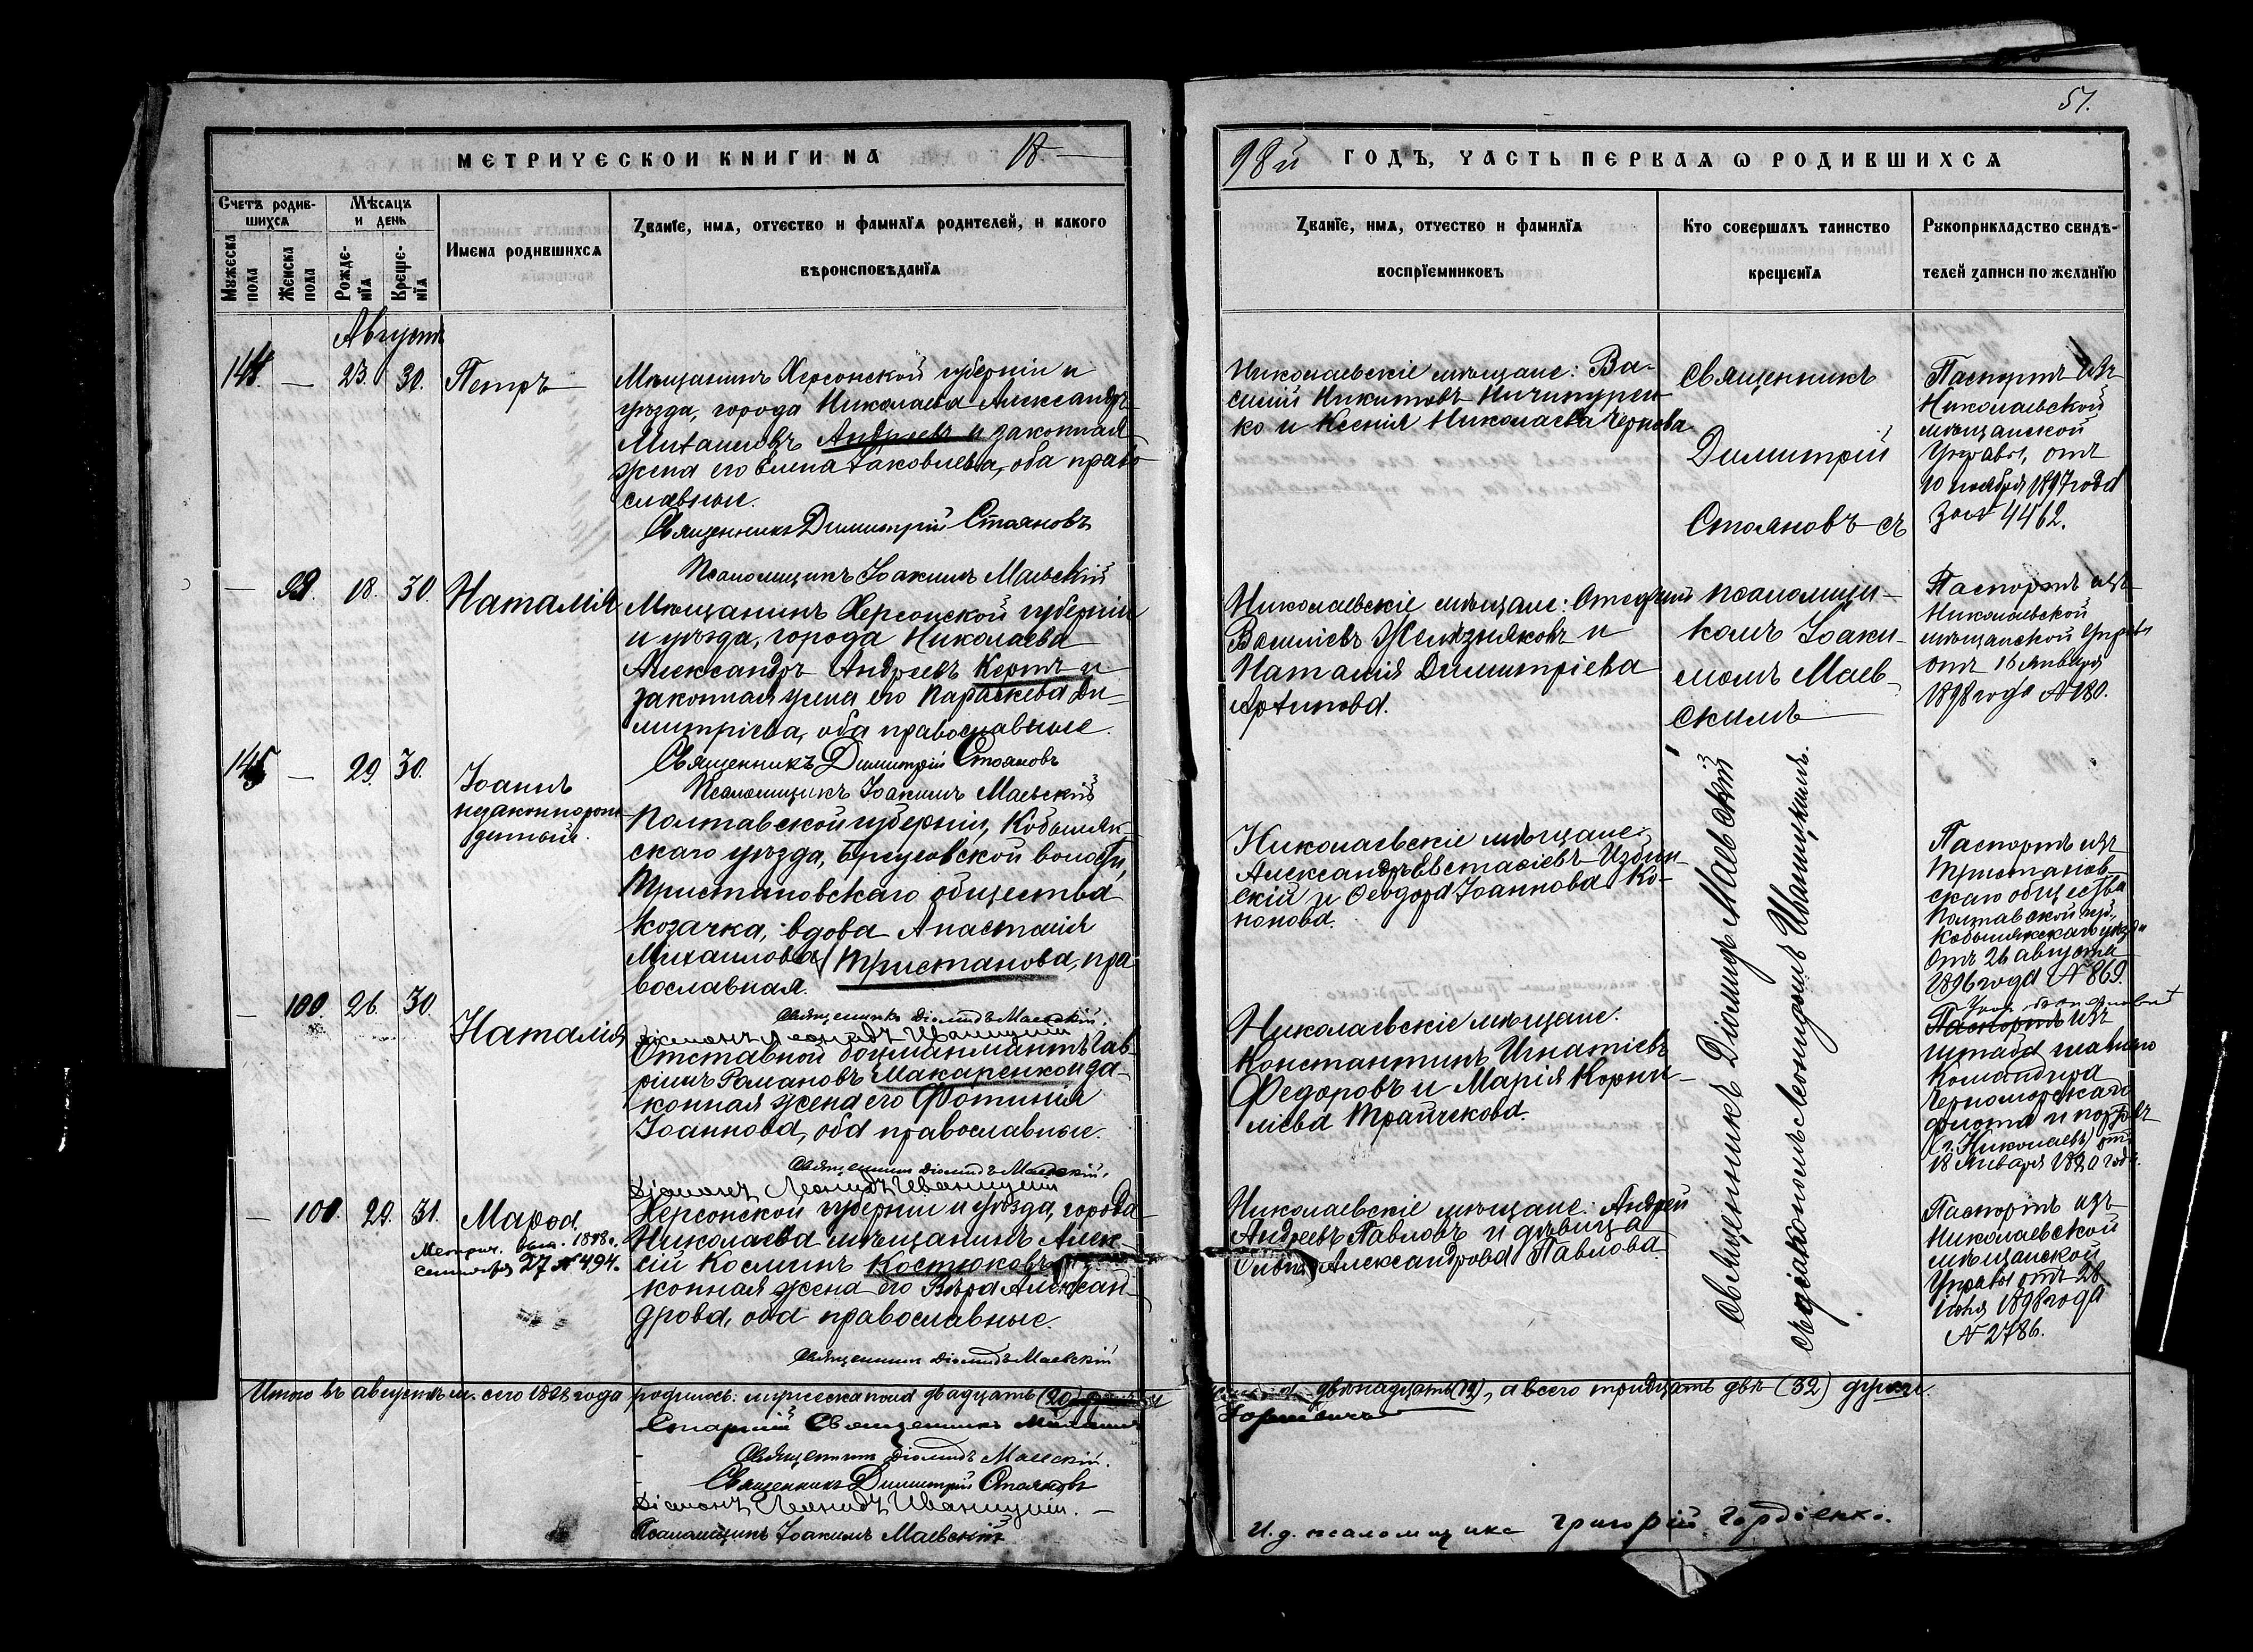 МЕТРИЧЕСКОЙ КНИГИ НА 18
Счетъ родив-
шихся
Мѣсяцъ
и день
Мужеска
пола
Женска
пола
Рожде-
нїя
Креще-
нїя
Имена родившихся
Званїе, имя, отчество и фамилїя родителей, и какого
вѣроисповѣданїя
Августъ
144. — 23. 30. Петръ
Мѣщанинъ Херсонской губерніи и
уѣзда, города Николаева Александръ
Михаиловъ Андреевъ и законная
жена его Елена Іаковлева, оба право-
славные.
Священникъ Димитрій Стояновъ
Псаломщикъ Іоакимъ Маевскій
— 99. 18. 30. Наталія
Мѣщанинъ Херсонской губерніи
и уѣзда, города Николаева
Александръ Андреевъ Кертъ и
законная жена его Параскева Ди-
митріева, оба православные.
Священникъ Димитрій Стояновъ
Псаломщикъ Іоакимъ Маевскій
145 — 29. 30. Іоаннъ
незаконнорож-
денный.
Полтавской губерніи, Кобыляк-
скаго уѣзда, волости,
Тристановскаго общества
козачка, вдова Анастасія
Михаилова Тристанова, пра-
вославная.
Священникъ Діомидъ Маевскій.
Діаконъ Леонидъ Иваницкій
— 100. 26. 30. Наталія
Отставной боцманматъ Гав-
ріилъ Романовъ Макаренко и за-
конная жена его Фотинія
Іоаннова, оба православные.
Священникъ Діомидъ Маевскій.
Діаконъ Леонидъ Иваницкій
— 101. 29. 31. Марѳа.
Метрич. вып. 1898 г.
сентября 27 № 494.
Херсонской губерніи и уѣзда, города
Николаева мѣщанинъ Алек-
сій Косминъ Костюковъ
конная жена его Вѣра Алексан-
дрова, оба православные.
Священникъ Діомидъ Маевскій
Итого въ августѣ м. сего 1898 года родилось: мужеска пола двадцать (20)
Старшій Священникъ
Священникъ Діомидъ Маевскій.
Священникъ Димитрій Стояновъ
Діаконъ Леонидъ Иваницкій. —
Псаломщикъ Іоакимъ Маевскій
51.
98й ГОДЪ, ЧАСТЬ ПЕРВАЯ Ѡ РОДИВШИХСЯ
Званїе, имя, отчество и фамилїя
воспрїемниковъ
Кто совершалъ таинство
крещенїя
Рукоприкладство свидѣ-
телей записи по желанїю
Николаевскіе мѣщане: Ва-
силій Никитовъ Ничипурен-
ко и Ксенія Николаева Чернова
Священникъ
Димитрій
Стояновъ съ
псаломщи-
комъ Іоаки-
момъ Маев-
скимъ
Паспортъ изъ
Николаевской
мѣщанской
Управы, отъ
10 ноября 1897 года
за № 4462.
Николаевскіе мѣщане:
Василіевъ Желѣзняковъ и
Наталія Димитріева
Паспортъ изъ
Николаевской
мѣщанской Управы
отъ 16 Января
1898 года № 180.
Николаевскіе мѣщане:
Александръ Евстаѳіевъ Избин-
скій и Ѳеодора Іоаннова Ко-
нонова.
Священникъ Діомидъ Маевскій
съ діакономъ Леонидомъ Иваницкимъ.
Паспортъ изъ
Тристанов-
скаго общества
Полтавской губ.,
Кобылякскаго уѣзда
отъ 26 августа
1896 года № 869.
Николаевскіе мѣщане.
Константинъ Игнатіевъ
Федоровъ и Марія Корни-
ліева Трайчекова.
Паспортъ изъ
штаба главнаго
Командира
Черноморскаго
флота и портовъ
(г. Николаевъ) отъ
18 Января 1890 года.
Николаевскіе мѣщане: Андрей
Андреевъ Павловъ и дѣвица
Александрова Павлова.
Паспортъ изъ
Николаевской
мѣщанской
Управы отъ 28
1898 года
№ 2786.
двѣнадцать (12), а всего тридцать двѣ (32) души.
И. д. псаломщика Григорій Гордіенко.